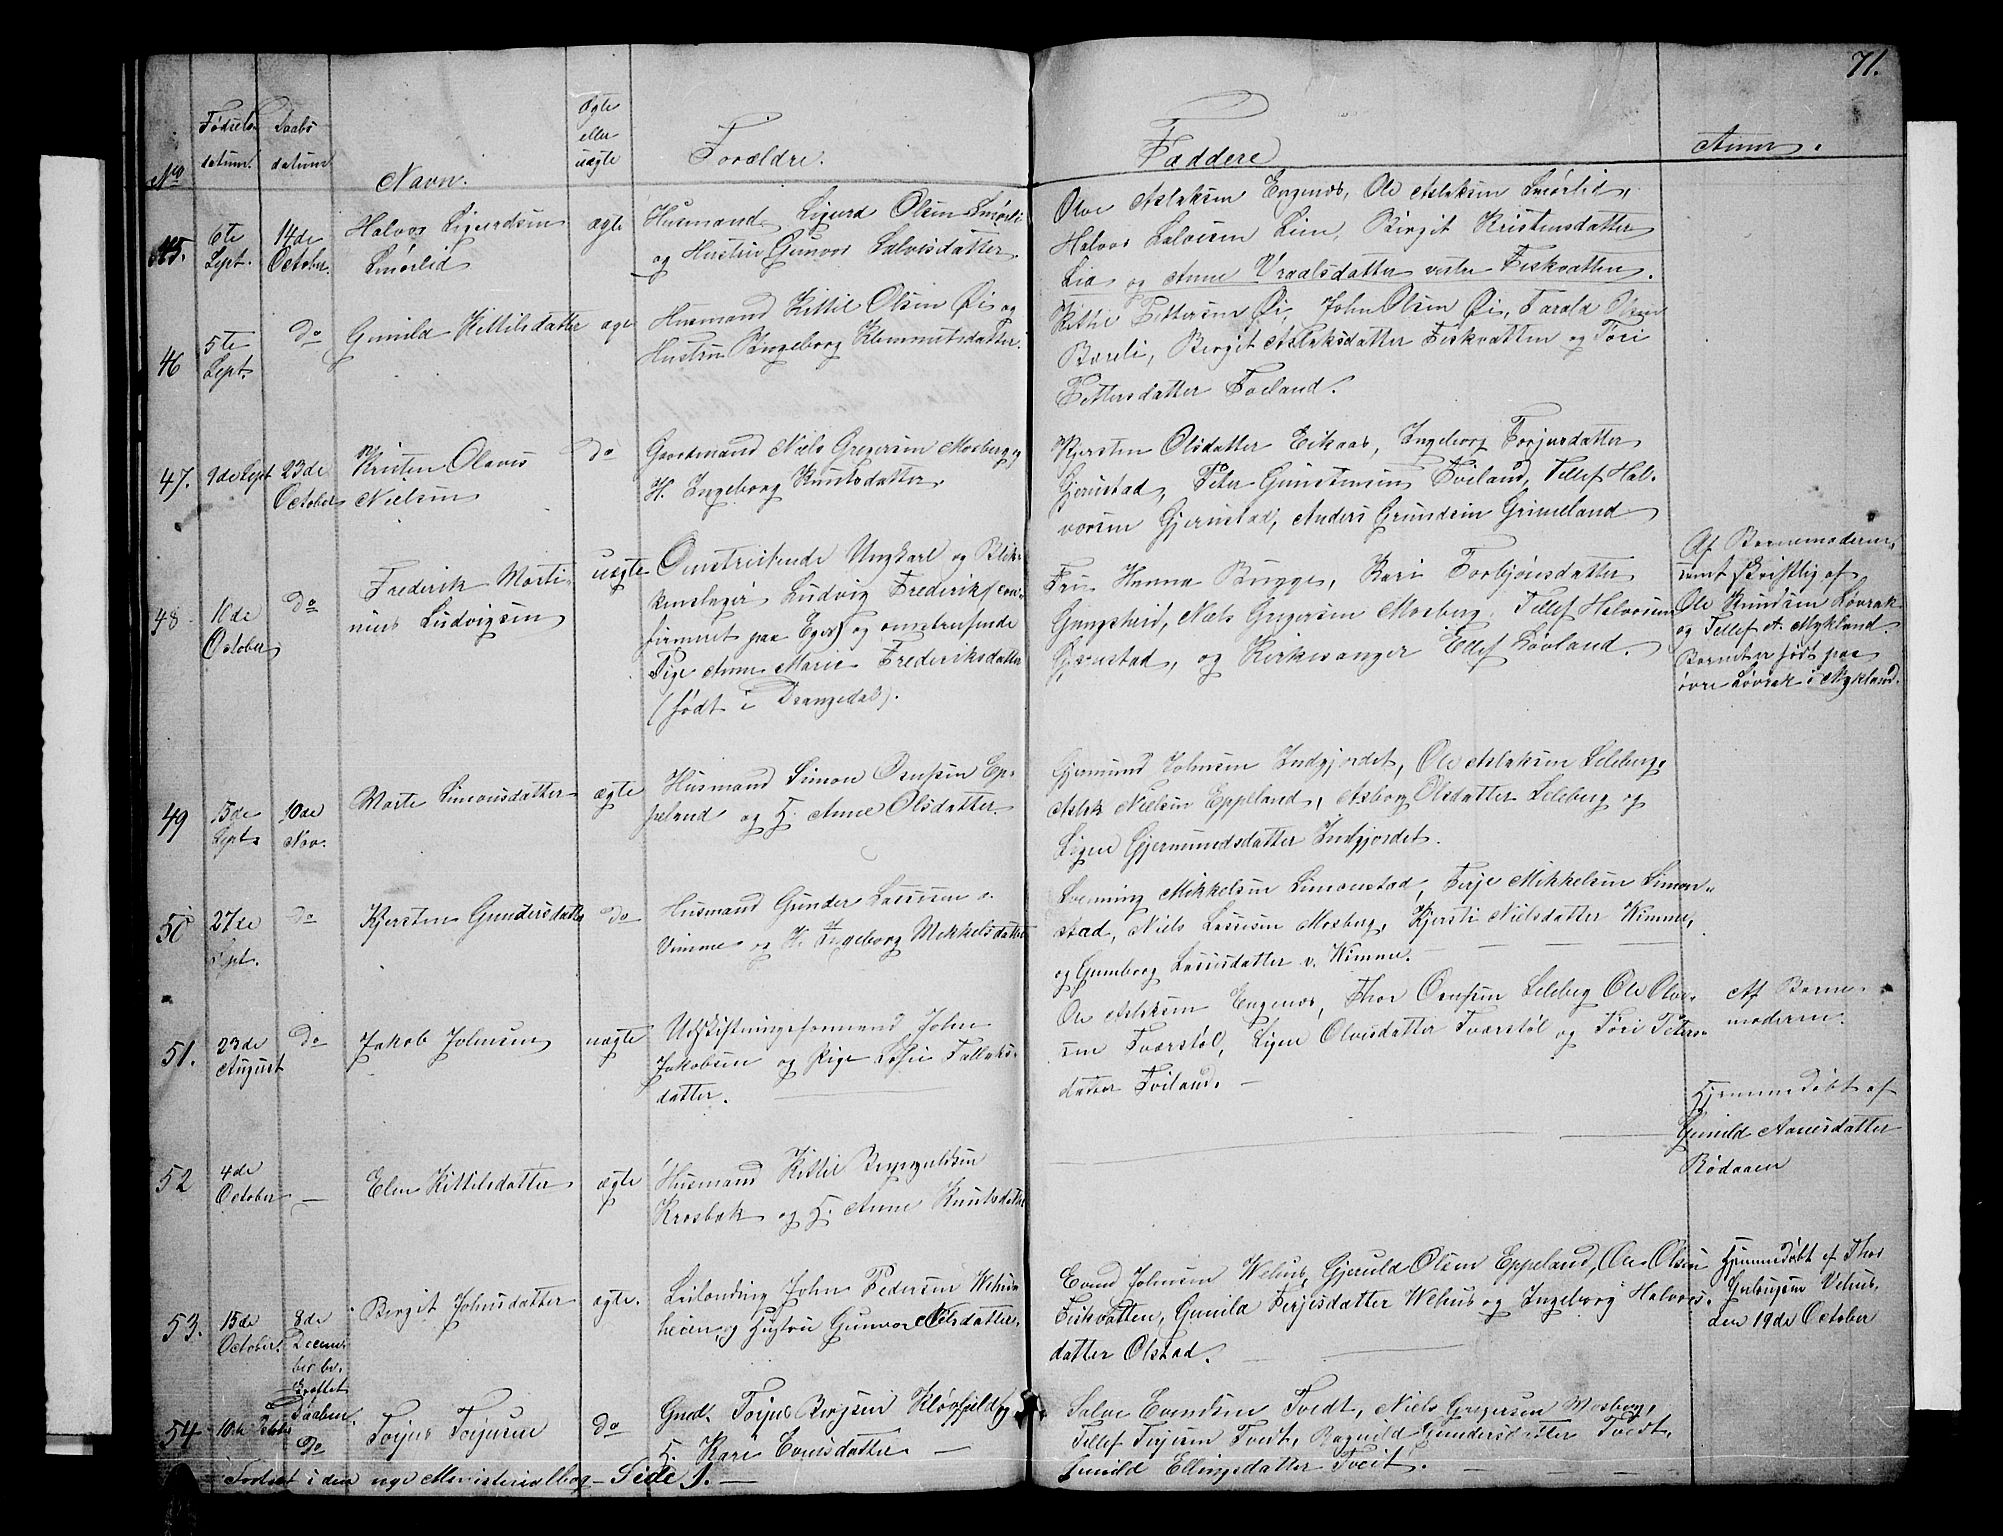 71.
No
Fødsels
datum.
Daabs
datum
Navn.
Ægte
eller
uægte
Forældre.
Faddere
Anm.
45.
6te
Sept.
14de
October.
Halvor Sigurdsen
Smørlid
ægte
Husmand Sigurd Olsen Smørli
og Hustru Gunvor Salvisdatter.
Olve Aslaksen Engenæs, Ole Aslaksen Smørlid,
Halvor Salvesen Lien, Birgit Kristensdatter
Lia og Anne Vraalsdatter vestre Fiskvatten.
46
5te
Sept.
do
Gunild Kittilsdatter
ægte
Husmand Kittil Olsen Øi og
Hustru Ingeborg Klemmetsdatter.
Kittil Pettersen Øi, John Olsen Øi, Tarald Olsen
Bæreli, Birgit Aslaksdatter Fiskvatten og Tori
Pettersdatter Foeland.
47.
9de Sept
23de
October
Kristen Olaves
Nielsen
do
Gaardmand Niels Gregersen Mosberg og
H. Ingeborg Knutsdatter.
Kjersten Olsdatter Eikaas, Ingeborg Torjusdatter
Gjerustad, Peter Gunstensen Tveiland, Tellef Hal-
vorsen Gjerustad, Anders Grundsen Grimeland
48
10de
October
do
Frederik Marti-
nius Ludvigsen
uægte
Omstreifende Ungkarl og Blik-
kenslager Ludvig Frederiksen con-
firmeret paa Eger og omstreifende
Pige Anne Marie Frederiksdatter
(født i Drangedal).
Fru Hanna Bugge, Kari Torbjønsdatter
Gangsheid, Niels Gregersen Mosberg, Tellef Halvorsen
Gjerustad, og Kirkesanger Edef Løvland.
Af Barnemoderen,
samt skriftlig af
Ole Knudsen Løvrak
og Tellef A. Mykland.
Barnet er født paa
øvre Løvrak i Mykland.
49
15de
Sept.
10de
Nov.
Marte Simonsdatter
ægte
Husmand Simon Osufsen Ep-
peland og H. Anne Olsdatter.
Gjermund Johnsen Indgjordet, Ole Aslaksen Seleberg,
Aslak Nielsen Eppeland, Asborg Olsdatter Seleberg og
Sigen Gjermundsdatter Indgjordet.
50
27de
Sept.
do
Kjersten Gundersdatter
do
Husmand Gunder Lassesen v.
Vimme og H. Ingeborg Mekkelsdatter
Svenning Mikkelsen Simonstad, Terje Mikkelsen Simon-
stad, Niels Lassesen Mosberg, Kjersti Nielsdatter Wimme,
og Gunborg Lassesdatter v. Wimme.
51.
23de
August
do
Jakob Johnsen
uægte
Udskiftningsformand John
Jakobsen og Pige Sofie Tallaks-
datter.
Ole Aslaksen Engenæs, Thor Osufsen Seleberg Ole Olve-
sen Tværstøl, Sigen Olvesdatter Tværstøl og Tori Peters-
datter Tveiland.
Af Barne-
moderen.
52
4de
October
Elen Kittilsdatter
ægte
Husmand Kittil Bergulvsen
Krosbæk og H. Anne Knutsdatter
Hjemmedøbt af
Gunild Aanesdatter
Bødaaen
53.
15de
October.
8de
Decem-
ber be-
kræftet
Daaben.
Birgit Johnsdatter
ægte.
Leilending John Pedersen Wehus-
heien, og Hustru Gunvor Nilsdatter.
Evend Johnsen Wehus, Gjeruld Olsen Eppeland, Ole Olsen
Fiskvatten, Gunild Terjesdatter Wehus og Ingeborg Halvors-
datter Olstad.
Hjemmedøbt af Thor
Gulbrigsen Vehus,
den 19de October
54
10de Octobr
do
Torjus Torjusen
do
Gmd. Torjus Bergsen Kløvfjeld og
H. Kari Evensdatter
Salve Evendsen Tvedt, Niels Gregersen Mosberg,
Tellef Torjusen Tvedt, Ragnild Gundersdatter Tvedt,
Gunild Ellingsdatter Tveit.
Fortsat i den nye Ministerialbog – Side 1.